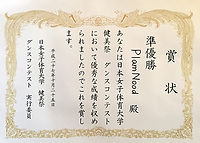 賞状
準優勝
PlamNood 殿
あなたは日本女子体育大学
健美祭 ダンスコンテスト
において優秀な成績を収め
られましたのでこれを賞し
ます。
平成二十七年十月二十五日
日本女子体育大学 健美祭
ダンスコンテスト 実行委員